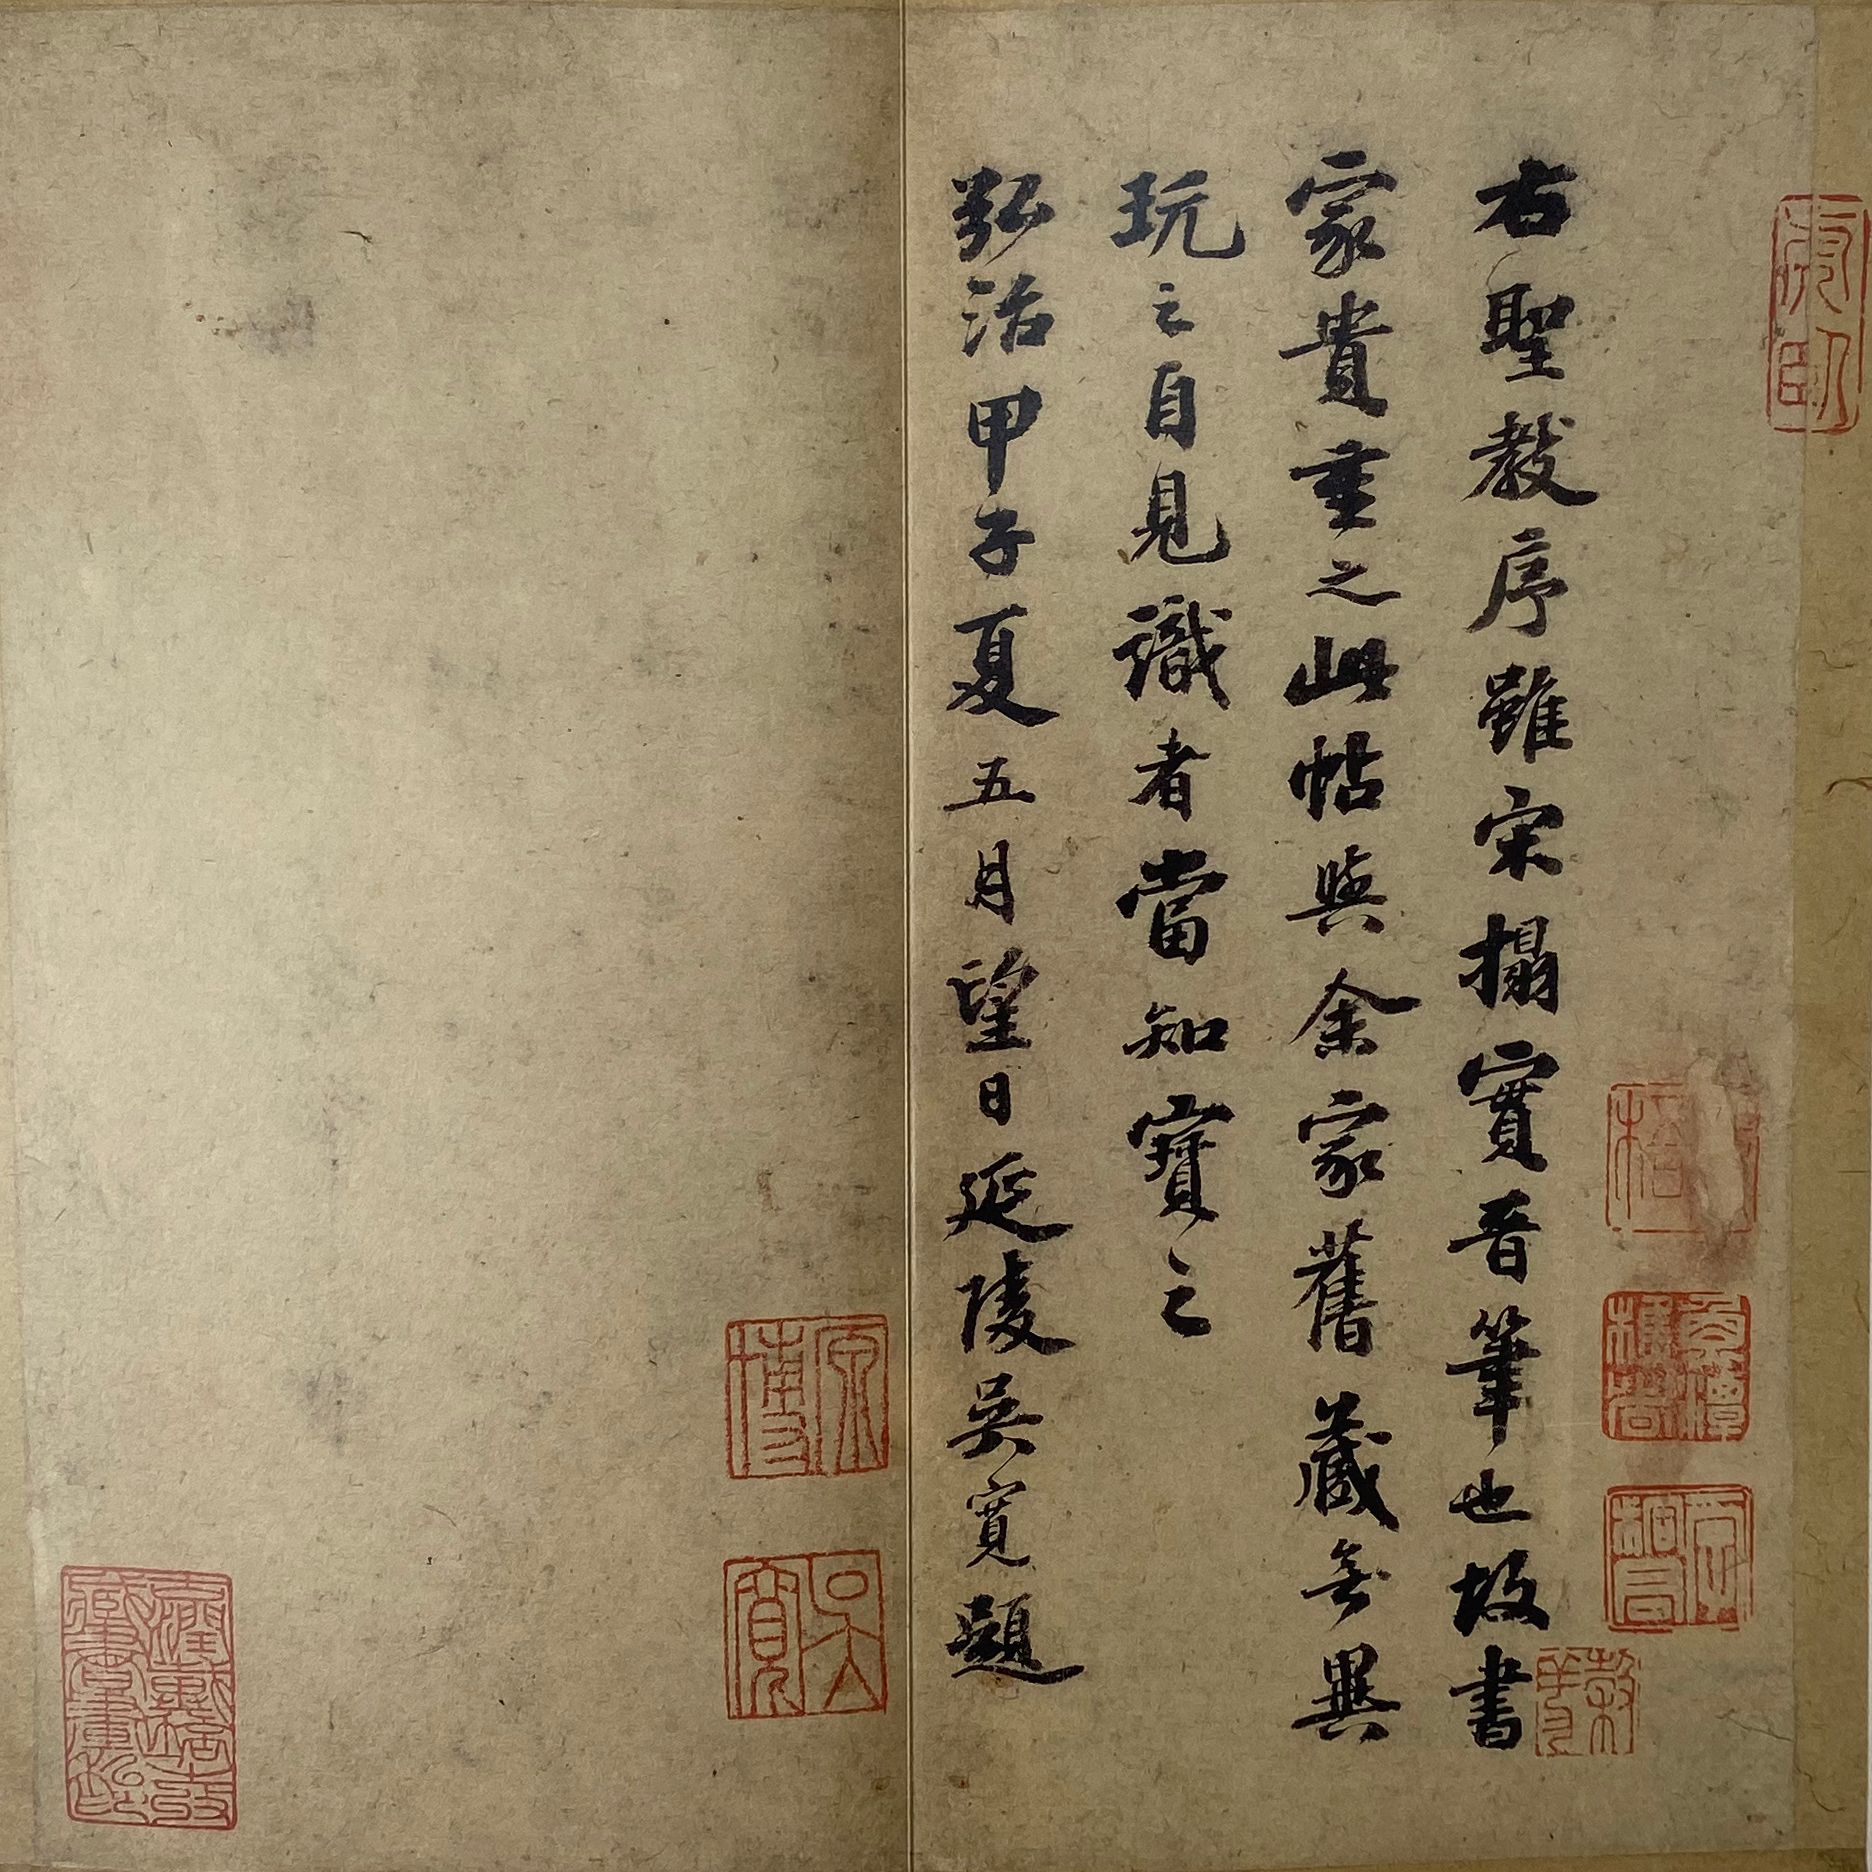 右聖教序雖宋搨實晋筆也故書
家貴重之此帖與余家舊藏無異
玩之自見識者當知寶之
弘治甲子夏五月望日延陵吳寬題
原博
吳寬